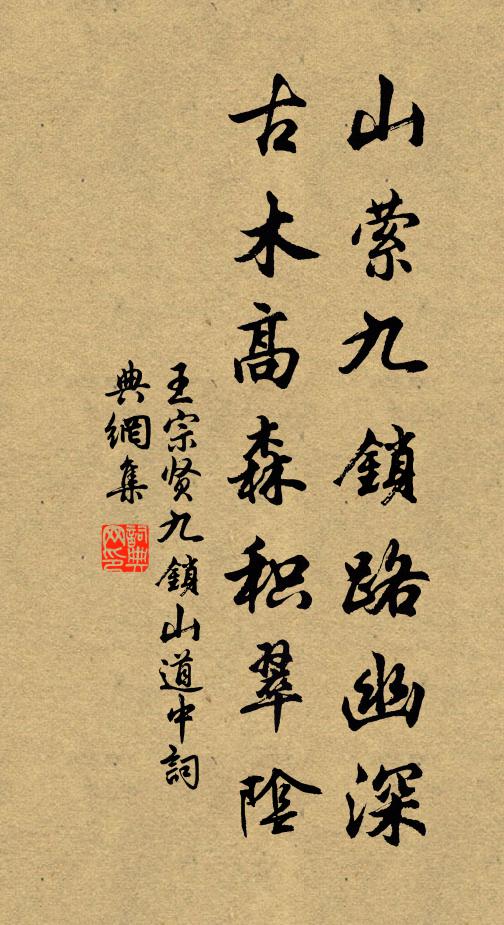 山萦九鎖路幽深
古木高森积翠陰
王宗贤九鎖山道中詞
典網集
詞典网印